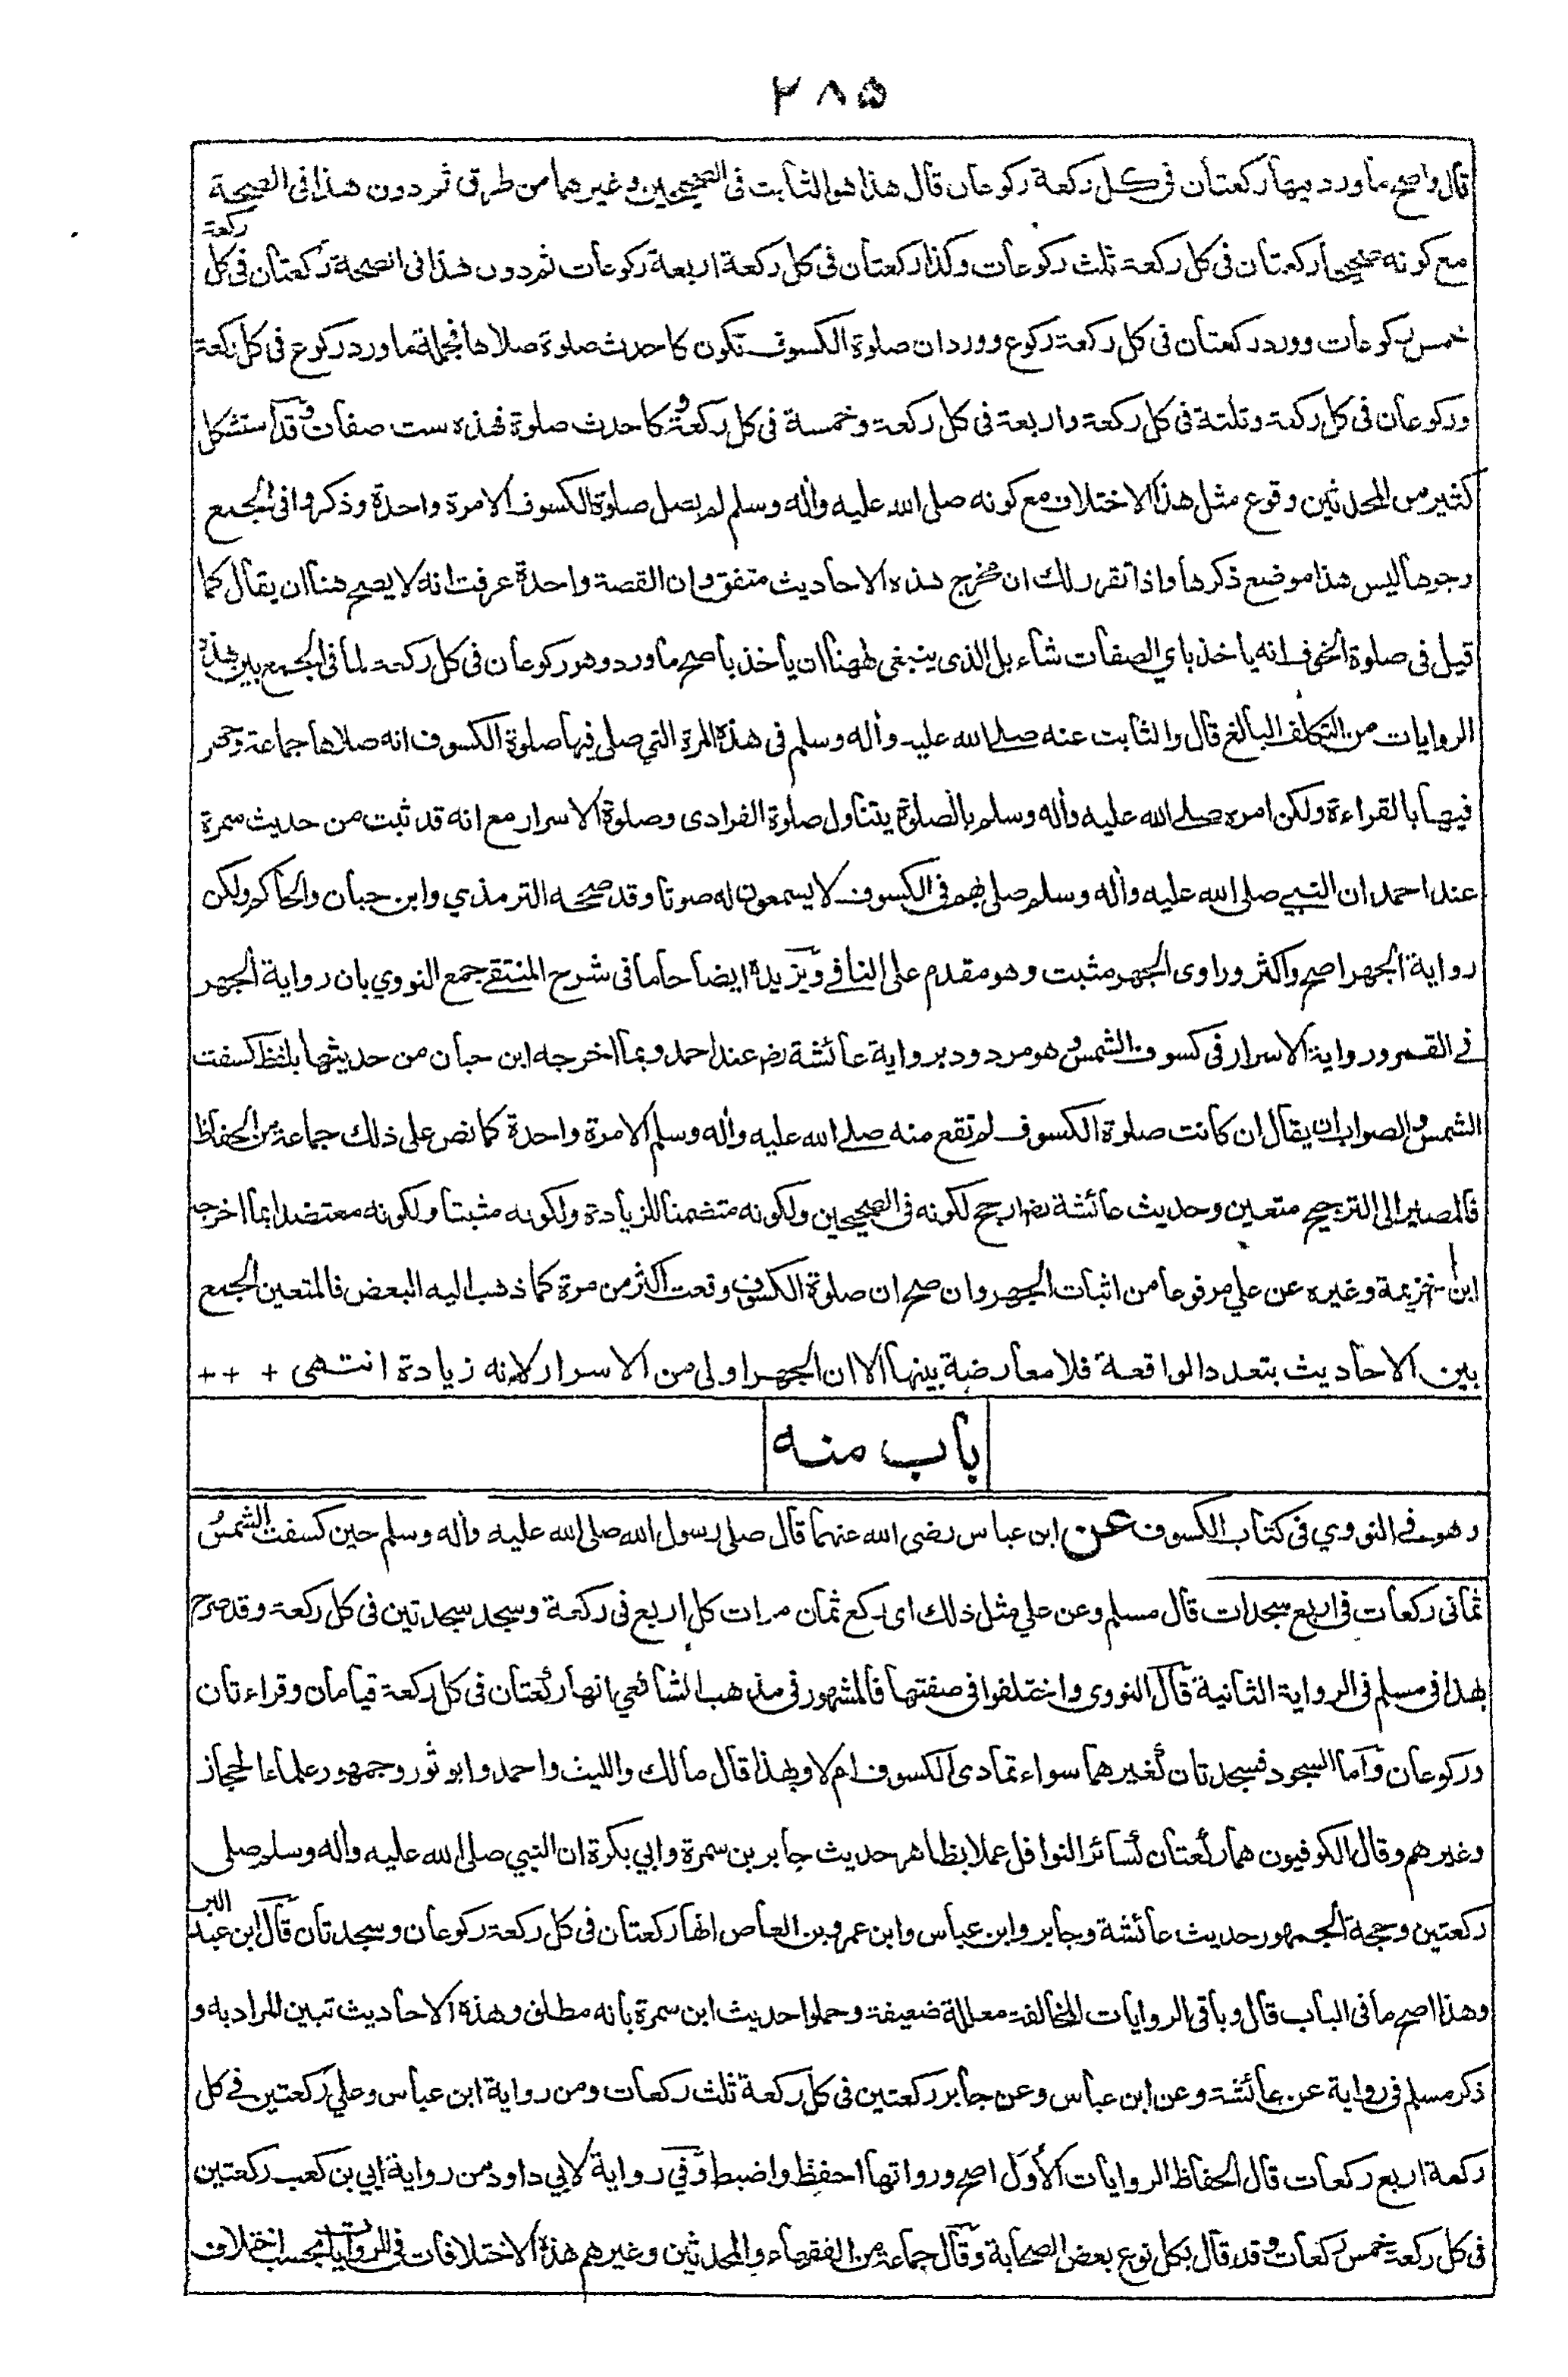 ٢٨٥
قال واصح ما ورد فيها ركعتان فى كل ركعة ركوعان قال هذا هو الثابت فى الصحيحين وغيرهما من طرق ثم دون هذا فى الصحة
مع كونه صحيحا ركعتان فى كل ركعة ثلث ركوعات وكذا ركعتان فى كل ركعة اربعة ركوعات ثم دون هذا فى الصحة ركعتان فى كل ركعة
خمس ركوعات وورد ركعتان فى كل ركعة ركوع وورد ان صلوة الكسوف تكون كاحدث صلوة صلاها فجملة ما ورد ركوع فى كل ركعة
وركوعان فى كل ركعة وثلثة فى كل ركعة واربعة فى كل ركعة وخمسة فى كل ركعة وكاحدث صلوة فهذه ست صفات وقد استشكل
كثير من المحدثين وقوع مثل هذا الاختلاف مع كونه صلى الله عليه وأله وسلم لم يصل صلوة الكسوف الا مرة واحدة وذكروا فى الجمع
وجوها ليس هذا موضع ذكرها واذا تقرر لك ان مخرج هذه الاحاديث متفق وان القصة واحدة عرفت انه لا يصح هنا ان يقال كما
قيل فى صلوة الخوف انه ياخذ باي الصفات شاء بل الذى ينبغى ههنا ان يأخذ بأصح ما ورد وهو ركوعان فى كل ركعة لما فى الجمع بين هذه
الروايات من التكلف البالغ قال والثابت عنه صلى الله عليه وأله وسلم فى هذه المرة التي صلى فيها صلوة الكسوف انه صلاها جماعة وجهر
فيها بالقراءة ولكن امره صلى الله عليه وأله وسلم بالصلوة يتناول صلوة الفرادى وصلوة الاسرار مع انه قد ثبت من حديث سمرة
عند احمد ان النبي صلى الله عليه وأله وسلم صلى بهم فى الكسوف لا يسمعون له صوتا وقد صححه الترمذي وابن حبان والحاكم ولكن
رواية الجهر اصح واكثر وراوى الجهر مثبت وهو مقدم على النافى ويزيده ايضاحا ما فى شرح المنتقى جمع النووي بان رواية الجهر
فى القمر ورواية الاسرار فى كسوف الشمس وهو مردود برواية عائشة رض عند احمد وبما اخرجه ابن حبان من حديثها بلفظ كسفت
الشمس والصواب ان يقال ان كانت صلوة الكسوف لم تقع منه صلى الله عليه وأله وسلم الا مرة واحدة كما نص على ذلك جماعة من الحفاظ
فالمصير الى الترجيح متعين وحديث عائشة رض ارجح لكونه فى الصحيحين ولكونه متضمنا للزيادة ولكونه مثبتا ولكونه معتضدا بما اخرجه
ابن خزيمة وغيره عن علي مرفوعا من اثبات الجهر وان صح ان صلوة الكسوف وقعت اكثر من مرة كما ذهب اليه البعض فالمتعين الجمع
بين الاحاديث بتعدد الواقعة فلا معارضة بينها الا ان الجهر اولى من الاسرار لانه زيادة انتهى + ++
باب منه
وهو فى النووي فى كتاب الكسوف عن ابن عباس رضى الله عنهما قال صلى رسول الله صلى الله عليه وأله وسلم حين كسفت الشمس
ثمانى ركعات فى اربع سجدات قال مسلم وعن علي مثل ذلك اى ركع ثمان مرات كل اربع فى ركعة وسجد سجدتين فى كل ركعة وقد صرح
بهذا فى مسلم فى الرواية الثانية قال النووى واختلفوا فى صفتها فالمشهور فى مذهب الشافعي انها ركعتان فى كل ركعة قيامان وقراءتان
وركوعان وأما السجود فسجدتان كغيرهما سواء تمادى الكسوف ام لا وبهذا قال مالك والليث واحمد وابو ثور وجمهور علماء الحجاز
وغيرهم وقال الكوفيون هما ركعتان كسائر النوافل عملا بظاهر حديث جابر بن سمرة وابي بكرة ان النبي صلى الله عليه وأله وسلم صلى
ركعتين وحجة الجمهور حديث عائشة وجابر وابن عباس وابن عمرو بن العاص انها ركعتان فى كل ركعة ركوعان وسجدتان قال ابن عبد البر
وهذا اصح ما فى الباب قال وباقى الروايات المخالفة معللة ضعيفة وحملوا حديث ابن سمرة بأنه مطلق وهذه الاحاديث تبين المراد به و
ذكر مسلم فى رواية عن عائشة وعن ابن عباس وعن جابر ركعتين فى كل ركعة ثلث ركعات ومن رواية ابن عباس وعلي ركعتين فى كل
ركعة اربع ركعات قال الحفاظ الروايات الأول اصح ورواتها احفظ واضبط وفي رواية لابي داود من رواية ابي بن كعب ركعتين
فى كل ركعة خمس ركعات وقد قال بكل نوع بعض الصحابة وقال جماعة من الفقهاء والمحدثين وغيرهم هذه الاختلافات فى الروايات بحسب اختلاف